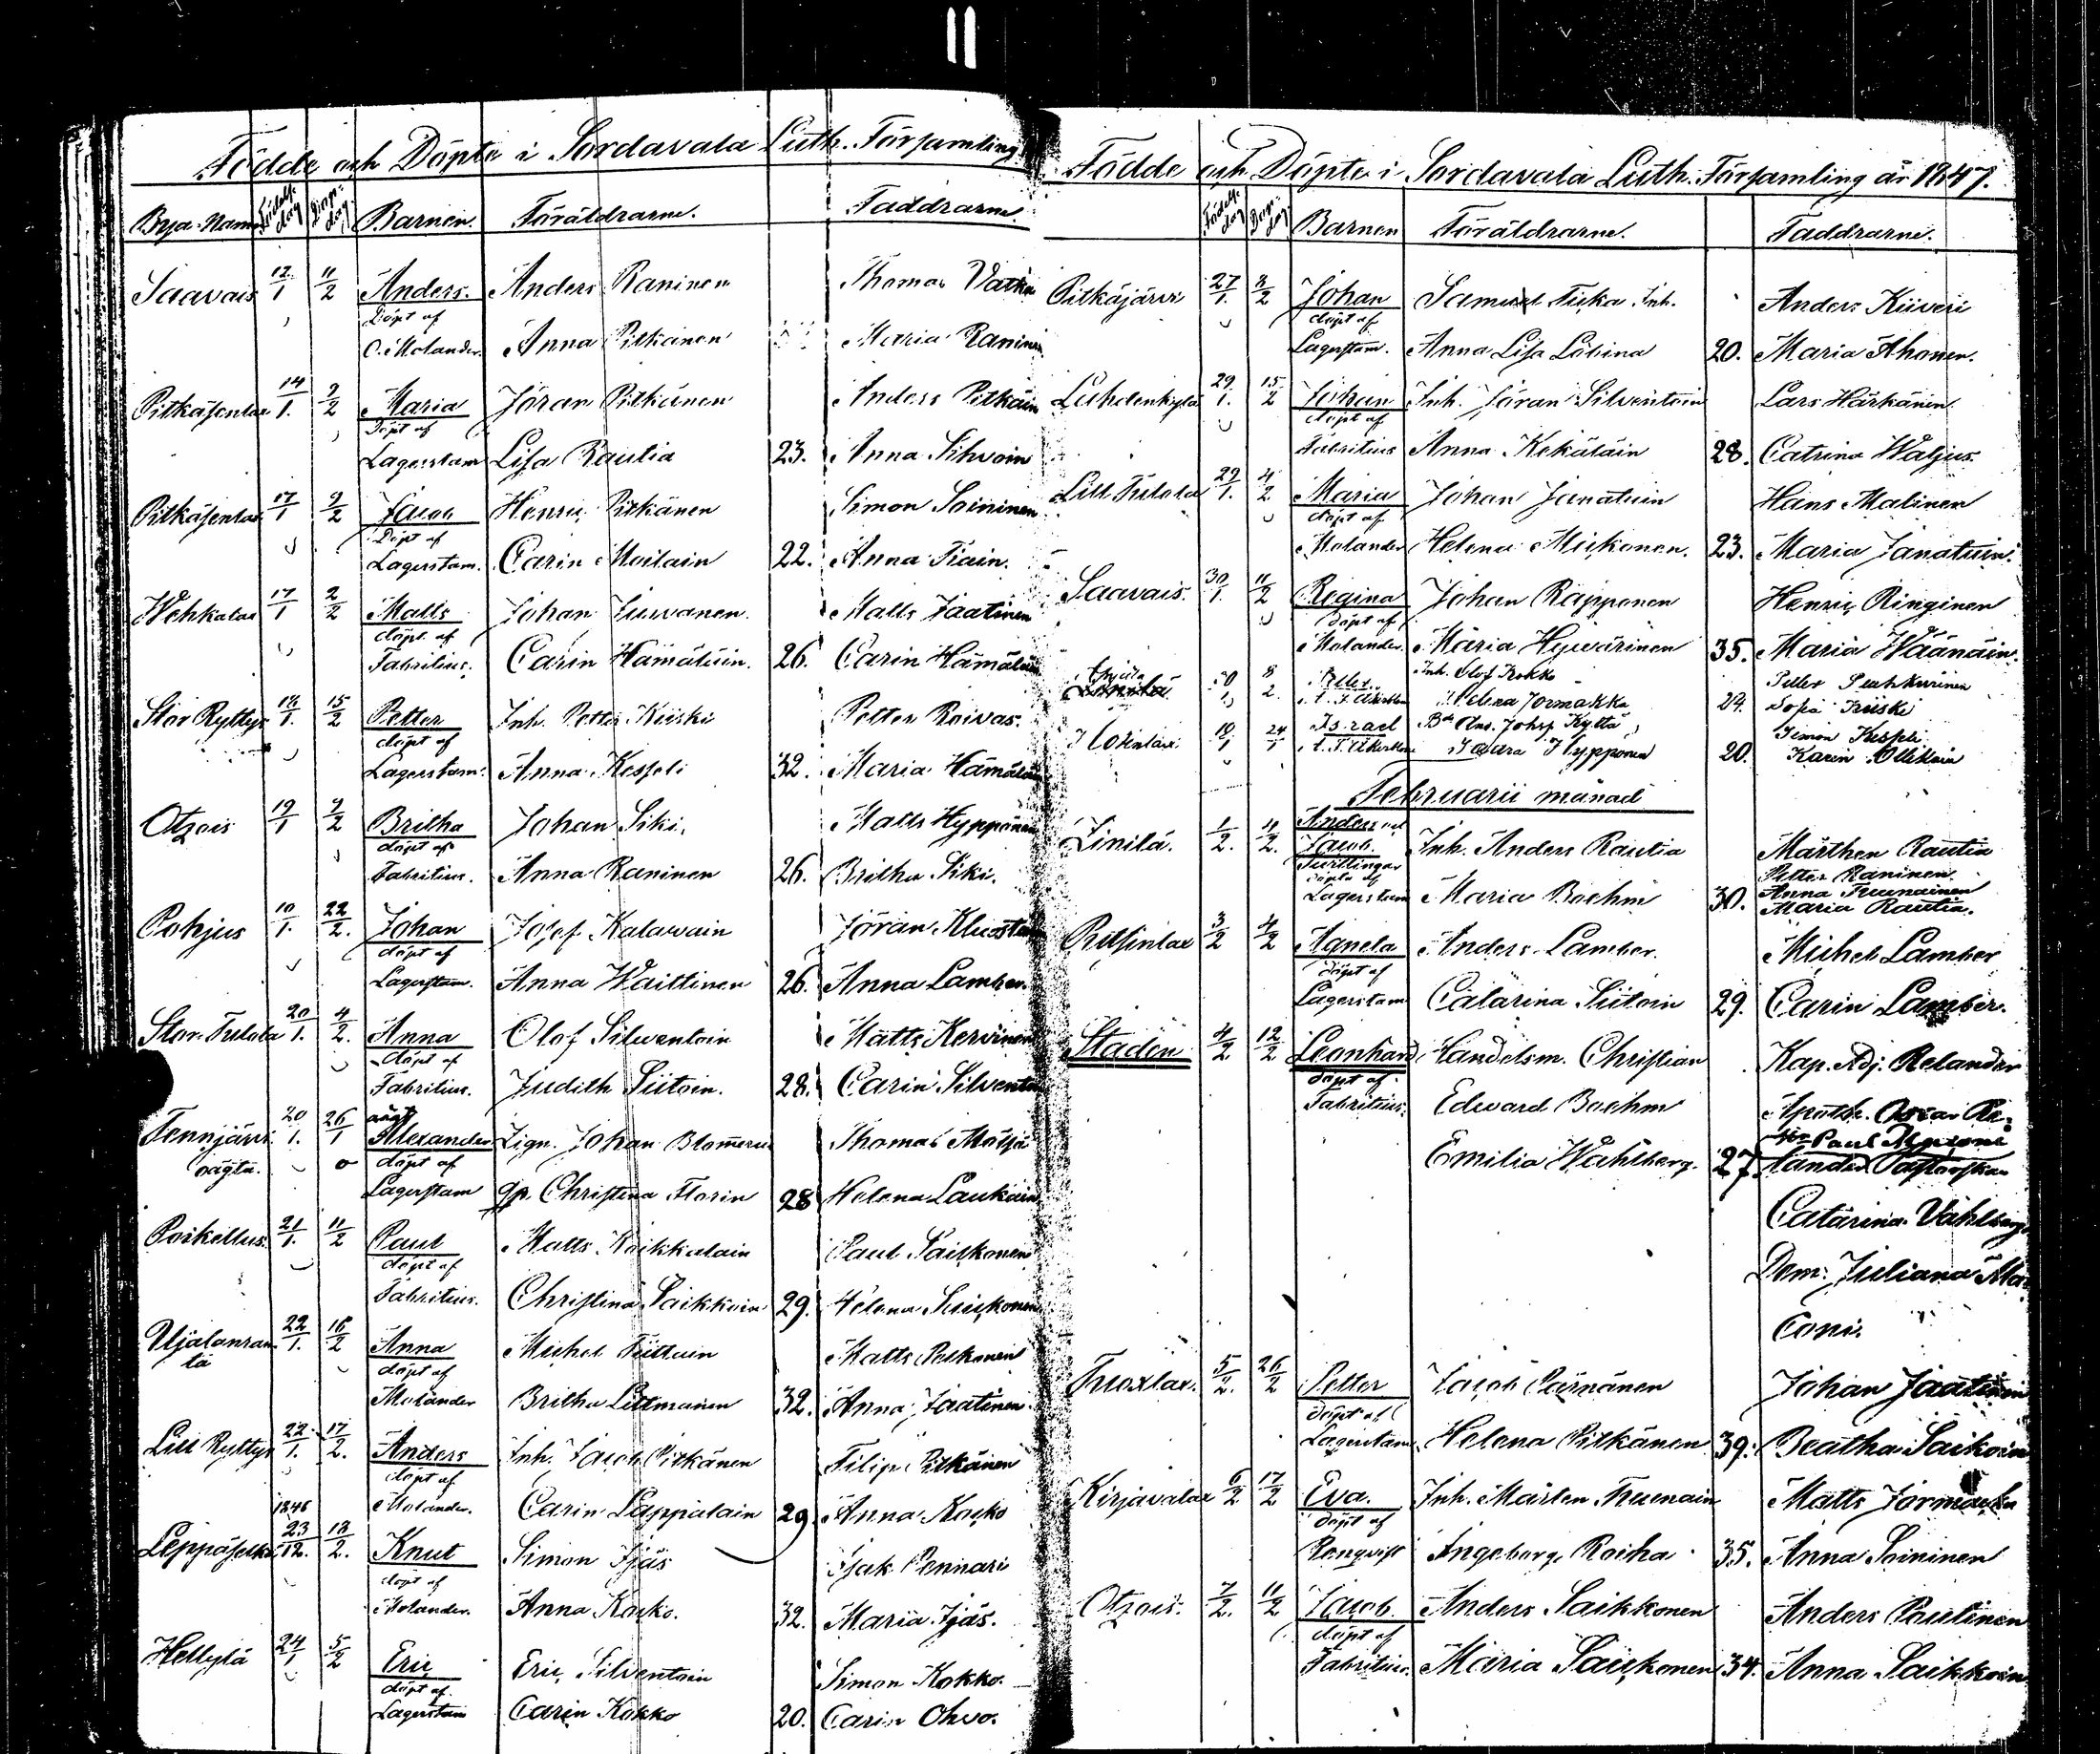 Födde och Döpte i Sordavala Luth. Församling
Bya-Namn Födelse dag Döpe-dag Barnen. Föräldrarne. Faddrarne.
Saavais 12/1 11/2 Anders. Anders Raninen Thomas
Döpt af
O. Molander. Anna Pitkänen Maria Raninen
14/1. 9/2 Maria Jöran Pitkänen Anders Pitkäin
Döpt af
Lagerstam Lisa Rautia 23. Anna Sihvoin
17/1 9/2 Jacob Henric Pitkänen Simon Soininen
Döpt af
Lagerstam. Carin 22. Anna Tiain.
17/1 2/2 Matts Johan Juvanen. Matts Jaatinen
döpt af
Fabritius. Carin Hämäläin. 26. Carin Hämäläin
Stor Ryttys 18/1. 15/2 Petter Inh. Petter Kiiski Petter Roivas.
döpt af
Lagerstam. Anna Kesseli 32. Maria Hämäläin
Otzois 19/1 9/2 Britha Johan Siki. Matts Hyppönen
döpt af
Fabritius. Anna Raninen 26. Britha Siki.
Pohjus 10/1. 22/2. Johan Josef Kalavain Jöran
döpt af
Lagerstam. Anna Waittinen 26. Anna Lamber
Stor Tulola 20/1. 4/2. Anna Olof Silventoin Matts Kervinen
döpt af
Fabritius. Judith Siitoin. 28. Carin Silventoin
Tennjärvi 20/1. 26/1 Alexander Johan Thomas
oägta. döpt af
Lagerstam Christina Florin 28 Helena Laukain
Poikellus. 21/1. 11/2 Paul Matts Koikkalain Paul Saukonen
döpt af
Fabritius. Christina Saikkoin 29. Helena Saukonen
22/1. 16/2 Anna Michel Matts Pelkonen
döpt af
Molander Britha Littmanen 32. Anna Jaatinen
Lill Ryttys 22/1. 17/2. Anders Inh. Jacob Pitkänen Filip Pitkänen
döpt af
1846 Molander. Carin Lappalain 29. Anna Kosko
Leppäselkä 23/12. 18/2. Knut Simon Ijäs Isak Pennari
döpt af
Molander. Anna Kosko. 32. Maria Ijäs.
Helylä 24/1 5/2 Eric Eric Silventoin Simon Kokko.
döpt af
Lagerstam Carin Kokko 20. Carin Ohvo.
Födde och Döpte i Sordavala Luth. Församling år 1847.
Födelse dag Döpe-dag Barnen Föräldrarne. Faddrarne.
Pitkäjärvi 27/1. 8/2 Johan Samuel Tiska Inh. Anders Kiiveri
döpt af
Lagerstam. Anna Lisa Löbina 20. Maria Ahonen.
29/1. 15/2 Johan Inh. Jöran Silventoin Lars Härkänen
döpt af
Fabritius Anna Kekäläin 28. Catrina Waljus.
Lill Tulola 29/1. 4/2 Maria Johan Janatuin Hans Malinen
döpt af
Molander Helena Miskonen. 23. Maria Janatuin
Saavais. 30/1. 11/2 Regina Johan Räpponen Henric Ringinen
döpt af
Molander. Maria Hyvärinen 35. Maria Wäänäin.
8/2 Peter Inh. Olof Kokko Peter
Helena Jormakka 29. Sofia Kiiski
24/1 Israel Simon Kesseli
Hypponen 20. Karin Ollikain
Februarii månad
1/2. 4/2. Anders och
Jacob. Inh. Anders Rautia Mårthen Rautia
tvillingar Petter Raninen
döpte af Anna Tuunainen
Lagerstam Maria Boehm 30. Maria Rautia.
3/2 4/2 Agneta Anders Lamber. Michel Lamber
döpt af
Lagerstam Catarina Siitoin 29. Carin Lamber.
Staden 4/2 12/2 Leonhard Handelsm. Christian Kap. Adj. Relander
döpt af
Fabritius. Edward Boehm Apoth. Oscar Re-
Emilia Wahlberg. 27. lander Pastorskan
Catarina Vahlberg
Dem: Juliana Ma
Coni.
Tuoxlax. 5/2. 26/2 Petter Jacob Pärnänen Johan Jaatinen
döpt af
Lagerstam Helena Pitkänen 39. Beatha Saikoin
Kirjavalax 6/2 17/2 Eva. Inh. Mårten Tuunain Matts Jormakka
döpt af
Ronqvist Ingeborg Roiha 35. Anna Soininen
Otzois. 7/2. 11/2 Jacob. Anders Saikkonen Anders Pautinen
döpt af
Fabritius. Maria Saukonen 34. Anna Saikkoin